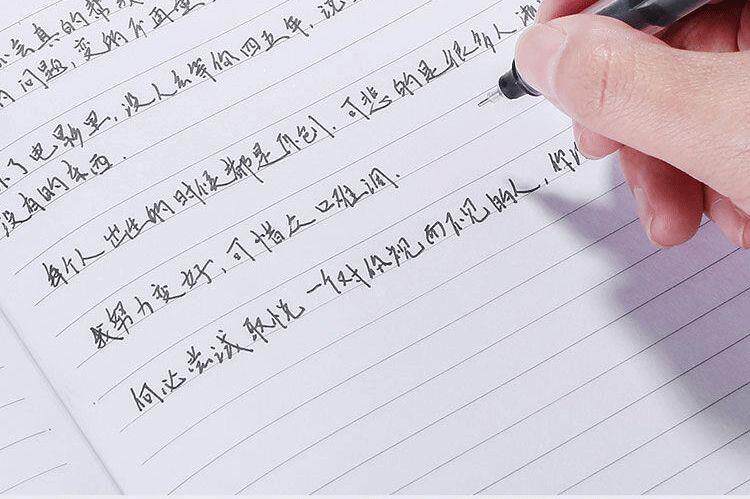 会真的帮
的问题,变的不再重
了电影里,没人会等你四五年,说
没有的东西.
每个人出生的时候都是原创,可悲的是很多人
我努力变好,可惜众口难调.
何必尝试取悦一个对你视而不见的人,你